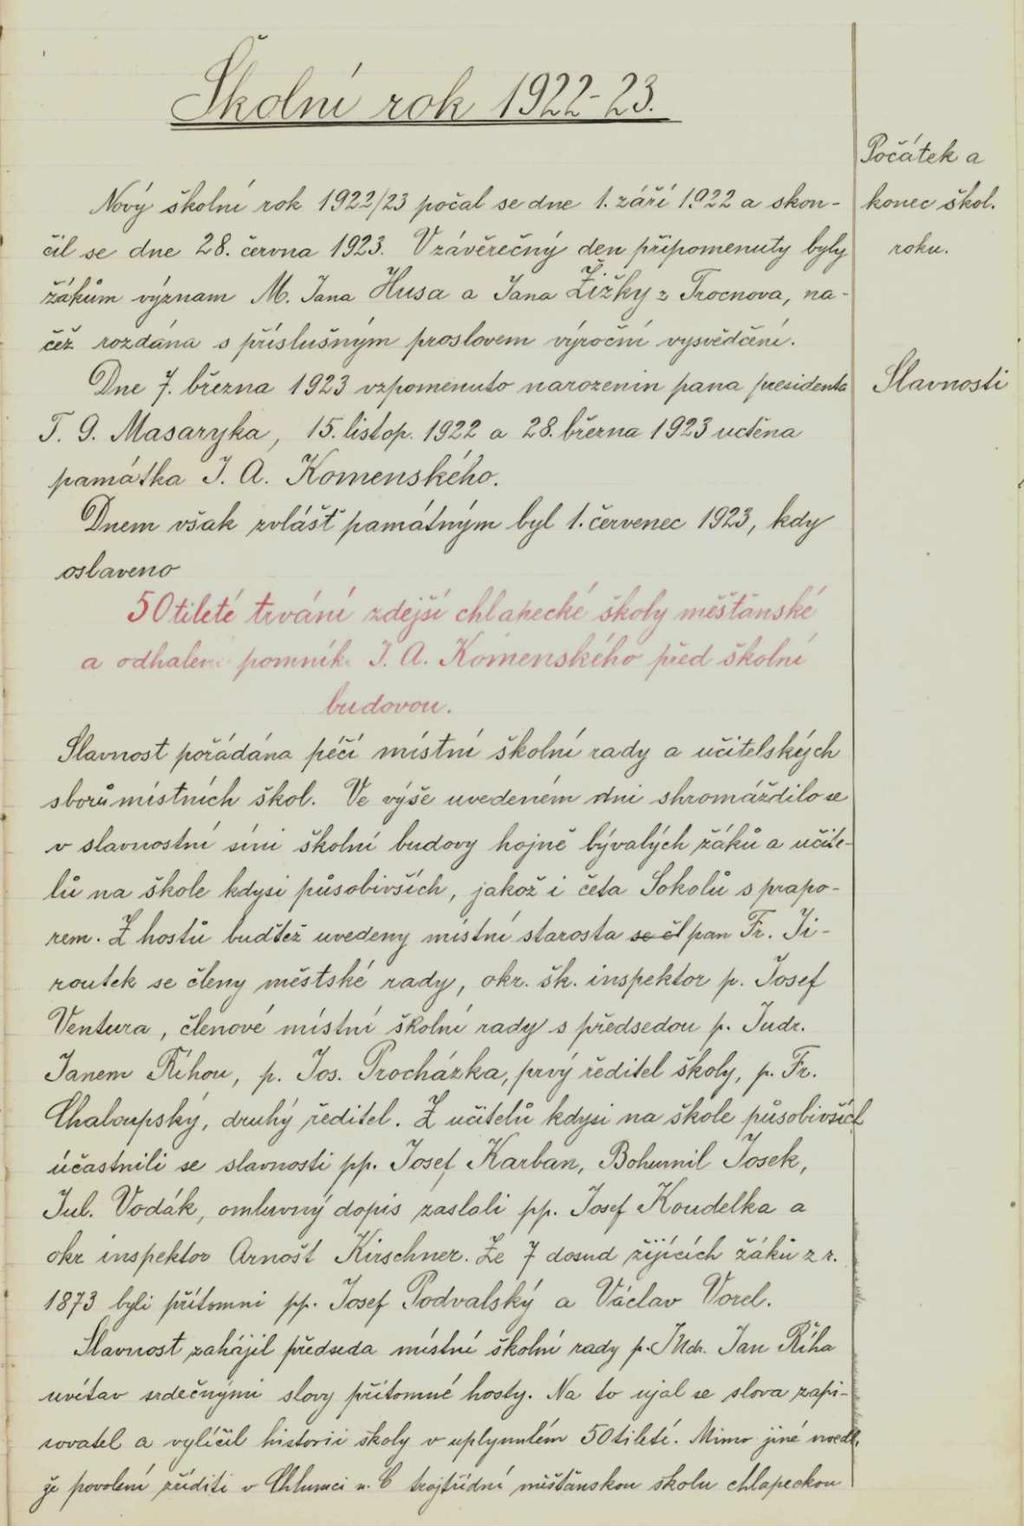 Školní rok 1922-23.
Počátek a
konec škol.
roku.
Nový školní rok 1922/23 počal se dne 1. září 1922 a skon-
čil se dne 28. června 1923. V závěrečný den připomenuty byly
žákům význam M. Jana Husa a Jana Žižky z Trocnova, na-
čež rozdána s příslušným proslovem výroční vysvědčení.
Slavnosti
Dne 7. března 1923 vzpomenuto narozenin pana presidenta
T. G. Masaryka, 15. listop. 1922 a 28. března 1923 uctěna
památka J. A. Komenského.
Dnem však zvlášť památným byl 1. červenec 1923, kdy
oslaveno
50tileté trvání zdejší chlapecké školy měšťanské
a odhalení pomníku J. A. Komenského před školní
budovou.
Slavnost pořádána péčí místní školní rady a učitelských
sborů místních škol. Ve výše uvedeném dni shromáždilo se
v slavnostní síni školní budovy hojně bývalých žáků a učite-
lů na škole kdysi působivších, jakož i četa Sokolů s prapo-
rem. Z hostů buďtež uvedeny místní starosta se čl pan Fr. Ji-
routek se členy městské rady, okr. šk. inspektor p. Josef
Ventura, členové místní školní rady s předsedou p. Judr.
Janem Říhou, p. Jos. Procházka, prvý ředitel školy, p. Fr.
Chaloupský, druhý ředitel. Z učitelů kdysi na škole působivších
účastnili se slavnosti pp. Josef Karban, Bohumil Josek,
Jul. Vodák, omluvný dopis zaslali pp. Josef Koudelka a
okr. inspektor Arnošt Kirschner. Ze 7 dosud žijících žáků z r.
1873 byli přítomni pp. Josef Podvalský a Václav Vorel.
Slavnost zahájil předseda místní školní rady p. JUdr. Jan Říha
uvítav srdečnými slovy přítomné hosty. Na to ujal se slova zapi-
sovatel a vylíčil historii školy v uplynulém 50tiletí. Mimo jiné uvedl,
že povolení zříditi v Chlumci n. C trojtřídní měšťanskou školu chlapeckou